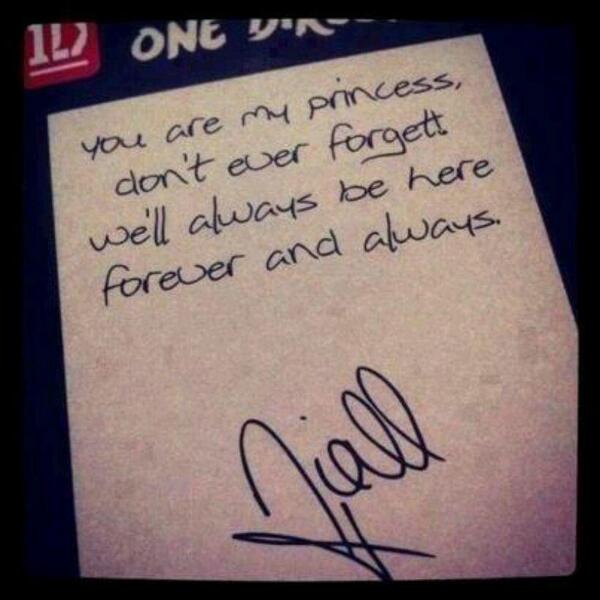 1D ONE
you are my princess,
don't ever forget!
we'll always be here
forever and always.
Niall